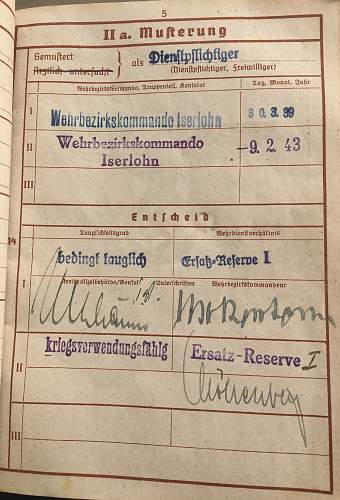 5
II a. Musterung
Gemustert
Ärztlich untersucht
als Dienstpflichtiger
(Dienstpflichtiger, Freiwilliger)
Wehrbezirkskommando, Truppenteil, Konsulat
Tag, Monat, Jahr
I
Wehrbezirkskommando Iserlohn
30.3.39
II
Wehrbezirkskommando
Iserlohn
-9. 2. 43
III
Entscheid
Tauglichkeitsgrad
Wehrdienstverhältnis
bedingt tauglich
Ersatz-Reserve I
I
Kreispolizeibehörde/Konsul
Unterschriften
Wehrbezirkskommandeur
kriegsverwendungsfähig
Ersatz-Reserve I
II
III